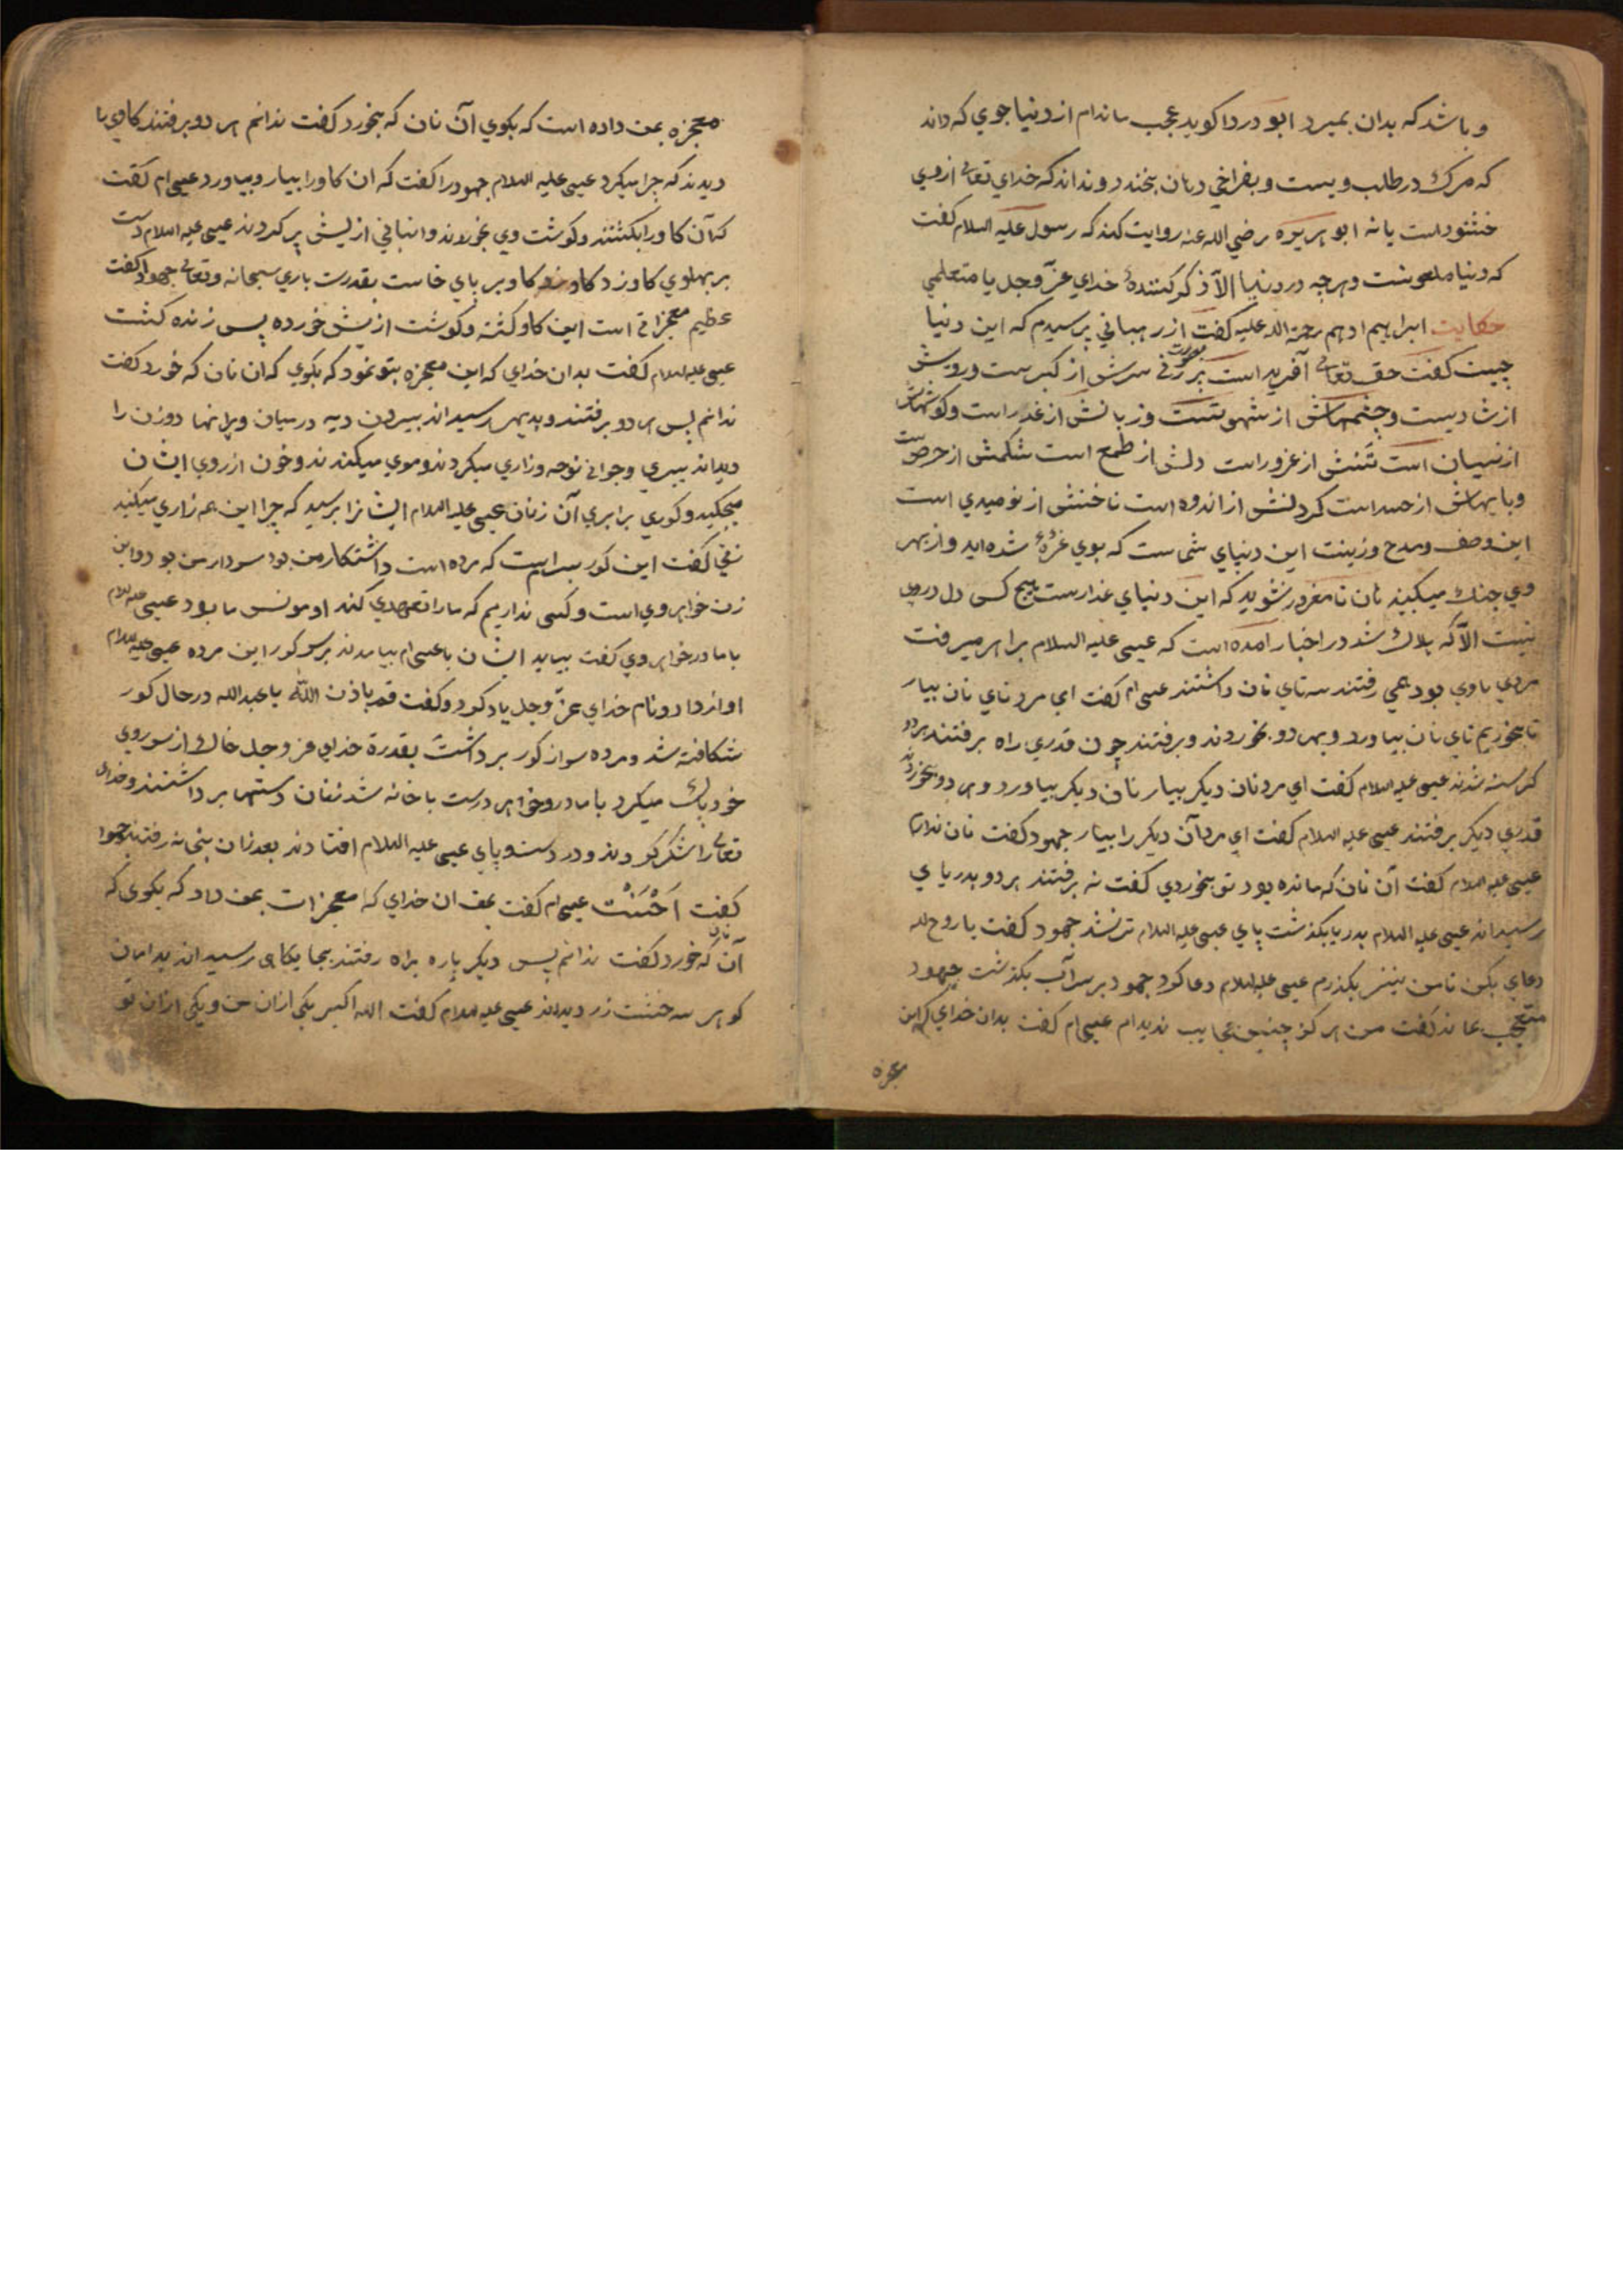 و باشد که بدان بمیرد ابو دردا کوید عجب مانده‌ام از دنیا جوی که داند
که مرک در طلب ویست و بفراخی دهان بخندد و نداند که خدای تعالی از وی
خشنودست یا نه ابو هریره رضی الله عنه روایت کند که رسول علیه السلام کفت
که دنیا ملعونست و هرچه در دنیا الّا ذکر کنندهٔ خدای عزّ و جل یا متعلمی
حکایت ابراهیم ادهم رحمة الله علیه کفت از رهبانی پرسیدم که این دنیا
چیست کفت حق تعالی آفریده است بر صورت زنی سرش از کبرست و رویش
از شادیست و چشمهاش از شهوتست و زبانش از غدر است و کوشهاش
از نسیان است تنش از غرور است دلش از طمع است شکمش از حرص است
و پایهاش از حسد است کردنش از اندوه است ناخنش از نومیدی است
این وصف و مدح و زینت این دنیای شماست که بوی غرّهٔ شده اید و از بهر
وی جنک میکنید هان تا مغرور نشوید که این دنیای غدارست هیچ کس دل در وی
نبست الّا که هلاک شد در اخبار آمده است که عیسی علیه السلام براهی میرفت
مردی با وی بود همی رفتند سه تای نان داشتند عیسی ام کفت ای مرد تای نان بیار
تا بخوریم تای نان بیاورد و بهر دو بخوردند و برفتند چون قدری راه برفتند
کرسنه شدند عیسی علیه السلام کفت ای مرد نان دیکر بیار نان دیکر بیاورد و هر دو بخوردند
قدری دیکر برفتند عیسی علیه السلام کفت ای مرد آن دیکر را بیار جهود کفت نان ندارم
عیسی علیه السلام کفت آن نان که مانده بود تو بخوردی کفت نه برفتند هر دو بدریای
رسیدند عیسی علیه السلام بدریا بکذشت پای عیسی علیه السلام تر نشد جهود کفت یا روح الله
دعای بکن تا من نیز بکذرم عیسی علیه السلام دعا کرد جهود بر سر آب بکذشت جهود
متعجب بماند کفت من هرکز چنین عجایب ندیدم عیسی ام کفت بدان خدای که این
معجزه
معجزه بمن داده است که بکوی آن نان که بخورد کفت ندانم هر دو برفتند کاوی را
دیدند که چرا میکرد عیسی علیه السلام جهود را کفت که ان کاو را بیار و بیاورد عیسی ام کفت
که آن کاو را بکشتند و کوشت وی بخوردند و انبانی از پیش پر کردند عیسی علیه السلام دست
بر پهلوی کاو زد کاو بر پای خاست بقدرت باری سبحانه و تعالی جهود کفت
عظیم معجزاتی است این کاو کشته و کوشت از پیش خورده پس زنده کشت
عیسی علیه السلام کفت بدان خدای که این معجزه بتو نمود که بکوی که ان نان که خورد کفت
ندانم پس هر دو برفتند و بدیهی رسیدند بیرون دیه در میان ویرانها دو زن را
دیدند پیری و جوانی نوحه و زاری میکردند و موی میکندند و خون از روی ایشان
میچکید و کوری برابری آن زنان عیسی علیه السلام ایشانرا پرسید که چرا این همه زاری میکنید
زنی کفت این کور پسرایست که مرده است و اشتکار من بود سردار من بود و این
زن خواهر وی است و کسی نداریم که ما را تعهدی کند او مونس ما بود عیسی علیه السلام
با مادر و خواهر وی کفت بیاید ایشان با عیسی ام بیامدند بر سر کور این مرده عیسی علیه السلام
آواز داد و نام خدای عزّ و جل یاد کرد و کفت قم باذن اللّه یا عبدالله در حال کور
شکافته شد و مرده سر از کور برداشت بقدرة خدای عز و جل خاک از سر و روی
خود پاک میکرد با مادر و خواهر درست با خانه شد زنان دستها برداشتند و خدای
تعالی را شکر کردند و در دست و پای عیسی علیه السلام افتادند بعد زان بخانه رفتند جهود
کفت اَحْسَنْتَ عیسی ام کفت بحق ان خدای که این معجزات بمن داد که بکوی که
آن نان که خورد کفت ندانم پس دیکر باره براه رفتند بجایکاهی رسیدند بدامان
کوهی سه خشت زر دیدند عیسی علیه السلام کفت الله اکبر یکی ازان من و یکی ازان تو